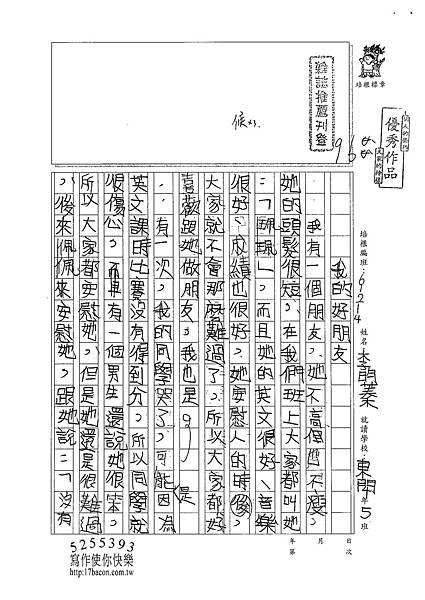 培根標章
個人的榮耀
優秀作品
大家的榜樣
雜誌推薦刊登
很好.
96
培根編班:6J214 姓名:李朋蓁 就讀學校:東門5年 班
我的好朋友
我有一個朋友,她不高但也不瘦。
她的頭髮很短,在我們班上大家都叫她
:「珮珮」,而且她的英文很好,音樂
很好,成績也很好,她安慰人的時候,
大家就不會那麼難過了,所以大家都好
喜歡跟她做朋友,我也是。
有一次,我的同學哭了,可能是因為
英文課時比賽沒有得到分,所以同學就
很傷心,而且有一個男生還說她很笨。
所以大家都安慰她,但是她還是很難過
,後來佩佩來安慰她,跟她說:「沒有
第 年
月
次 日
5255393
寫作使你快樂
http://17bacon.com.tw